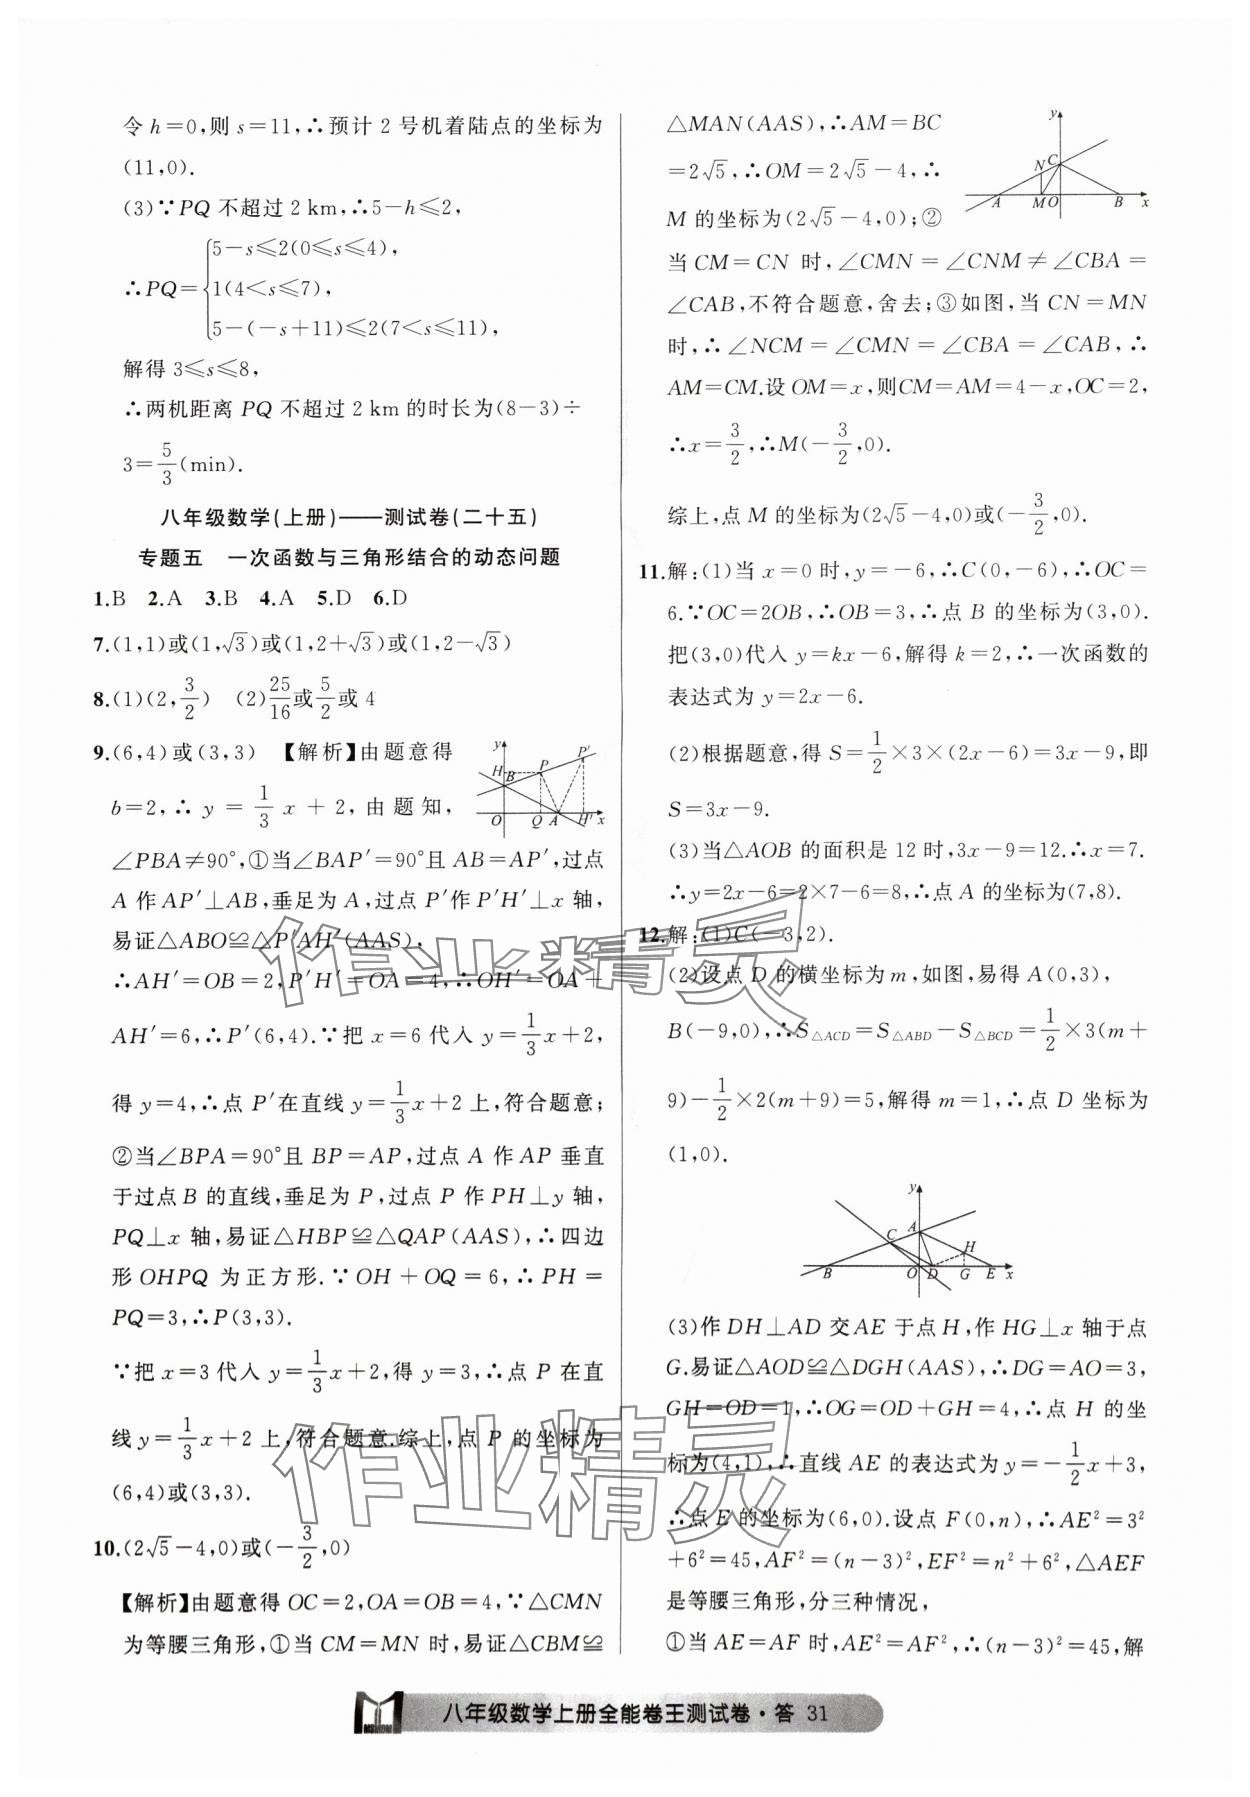 令 h=0,则 s=11,∴预计 2 号机着陆点的坐标为
(11,0).
(3)∵PQ 不超过 2 km,∴5-h≤2,
∴PQ={5-s≤2(0≤s≤4),
1(4<s≤7),
5-(-s+11)≤2(7<s≤11),
解得 3≤s≤8,
∴两机距离 PQ 不超过 2 km 的时长为(8-3)÷
3=5/3(min).
八年级数学(上册)——测试卷(二十五)
专题五 一次函数与三角形结合的动态问题
1.B 2.A 3.B 4.A 5.D 6.D
7.(1,1)或(1,√3)或(1,2+√3)或(1,2-√3)
8.(1)(2,3/2) (2)25/16或5/2或 4
9.(6,4)或(3,3) 【解析】由题意得
b=2,∴ y = 1/3 x + 2,由题知,
y H B P P′ O Q A H′ x
∠PBA≠90°,①当∠BAP′=90°且 AB=AP′,过点
A 作 AP′⊥AB,垂足为 A,过点 P′作 P′H′⊥x 轴,
易证△ABO≌△P′AH′(AAS),
∴AH′=OB=2,P′H′=OA=4,∴OH′=OA+
AH′=6,∴P′(6,4).∵把 x=6 代入 y=1/3x+2,
得 y=4,∴点 P′在直线 y=1/3x+2 上,符合题意;
②当∠BPA=90°且 BP=AP,过点 A 作 AP 垂直
于过点 B 的直线,垂足为 P,过点 P 作 PH⊥y 轴,
PQ⊥x 轴,易证△HBP≌△QAP(AAS),∴四边
形 OHPQ 为正方形.∵OH+OQ=6,∴PH=
PQ=3,∴P(3,3).
∵把 x=3 代入 y=1/3x+2,得 y=3,∴点 P 在直
线 y=1/3x+2 上,符合题意.综上,点 P 的坐标为
(6,4)或(3,3).
10.(2√5-4,0)或(-3/2,0)
【解析】由题意得 OC=2,OA=OB=4,∵△CMN
为等腰三角形,①当 CM=MN 时,易证△CBM≌
△MAN(AAS),∴AM=BC
=2√5,∴OM=2√5-4,∴
M 的坐标为(2√5-4,0);②
y N C A M O B x
当 CM=CN 时,∠CMN=∠CNM≠∠CBA=
∠CAB,不符合题意,舍去;③如图,当 CN=MN
时,∴∠NCM=∠CMN=∠CBA=∠CAB,∴
AM=CM.设 OM=x,则CM=AM=4-x,OC=2,
∴x=3/2,∴M(-3/2,0).
综上,点 M 的坐标为(2√5-4,0)或(-3/2,0).
11.解:(1)当 x=0 时,y=-6,∴C(0,-6),∴OC=
6.∵OC=2OB,∴OB=3,∴点 B 的坐标为(3,0).
把(3,0)代入 y=kx-6,解得 k=2,∴一次函数的
表达式为 y=2x-6.
(2)根据题意,得 S=1/2×3×(2x-6)=3x-9,即
S=3x-9.
(3)当△AOB 的面积是 12 时,3x-9=12.∴x=7.
∴y=2x-6=2×7-6=8,∴点 A 的坐标为(7,8).
12.解:(1)C(-3,2).
(2)设点 D 的横坐标为 m,如图,易得 A(0,3),
B(-9,0),∴S△ACD=S△ABD-S△BCD=1/2×3(m+
9)-1/2×2(m+9)=5,解得 m=1,∴点 D 坐标为
(1,0).
y A C H B O D G E x
(3)作 DH⊥AD 交AE 于点 H,作 HG⊥x 轴于点
G.易证△AOD≌△DGH(AAS),∴DG=AO=3,
GH=OD=1,∴OG=OD+GH=4,∴点 H 的坐
标为(4,1),∴直线 AE 的表达式为 y=-1/2x+3,
∴点 E 的坐标为(6,0).设点 F(0,n),∴AE²=3²
+6²=45,AF²=(n-3)²,EF²=n²+6²,△AEF
是等腰三角形,分三种情况,
①当 AE=AF 时,AE²=AF²,∴(n-3)²=45,解
作业精灵
作业精灵
八年级数学上册全能卷王测试卷·答 31